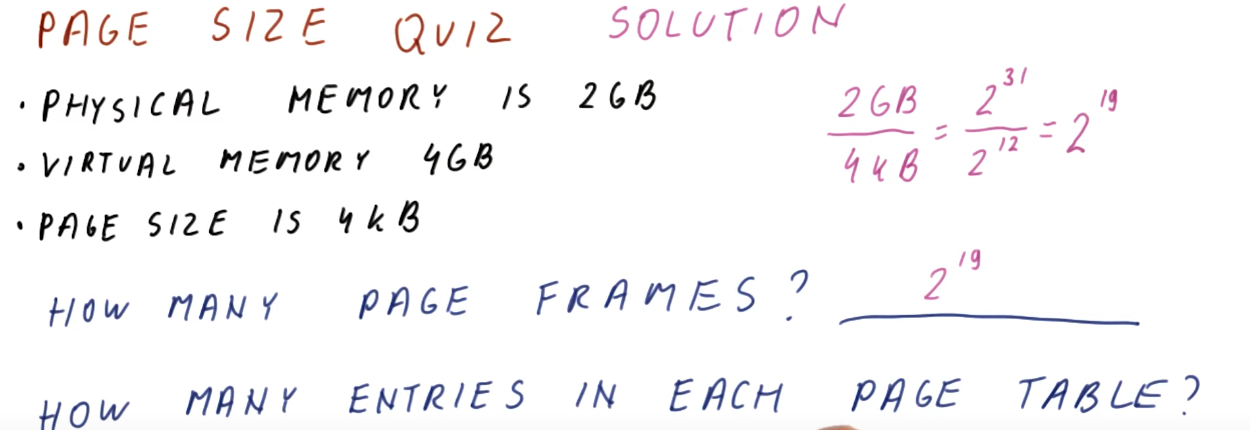 PAGE SIZE QUIZ SOLUTION
• PHYSICAL MEMORY IS 2GB
• VIRTUAL MEMORY 4GB
• PAGE SIZE IS 4kB
2GB/4kB = 2^31/2^12 = 2^19
HOW MANY PAGE FRAMES? 2^19
HOW MANY ENTRIES IN EACH PAGE TABLE?